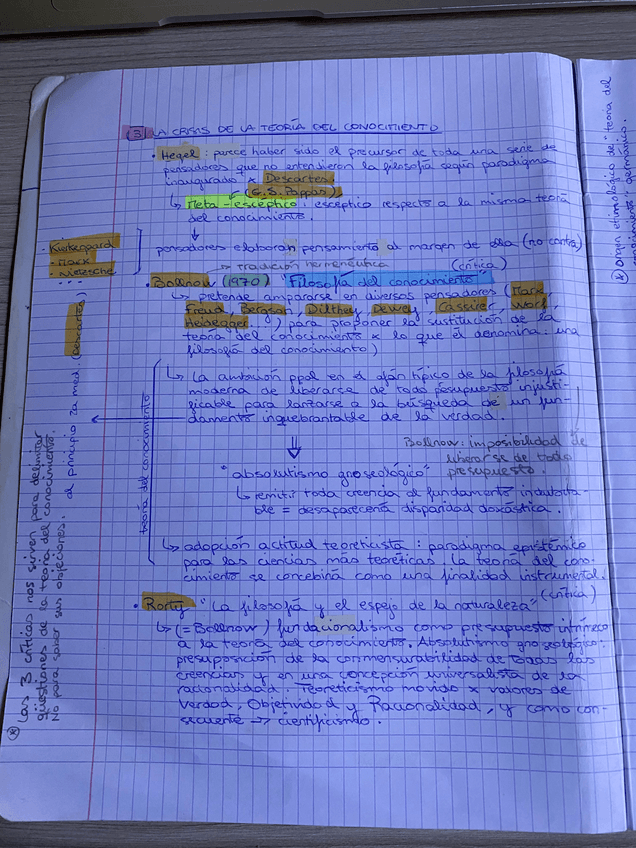 3 LA CRISIS DE LA TEORÍA DEL CONOCIMIENTO
• Hegel : parece haber sido el precursor de toda una serie de
pensadores que no entendieron la filosofía según paradigma
inaugurado x Descartes.
(G.S. Pappas)
↳ Meta-escéptico : escéptico respecto a la misma teoría
del conocimiento.
↓
pensadores elaboran pensamiento al margen de ella (no contra)
• Kierkegaard
• Marx
• Nietzsche
→ tradición hermenéutica (crítica)
• Bollnow (1970) "Filosofía del conocimiento"
↳ pretende ampararse en diversos pensadores (Marx,
Freud, Bergson, Dilthey, Dewey, Cassirer,
Heidegger...) para proponer la sustitución de la
teoría del conocimiento x lo que él denomina una
filosofía del conocimiento)
↳ La ambición ppal en el afán típico de la filosofía
moderna de liberarse de todo presupuesto injusti-
ficable para lanzarse a la búsqueda de un fun-
damento inquebrantable de la verdad.
⇓
Bollnow: imposibilidad de
liberarse de todo
presupuesto.
"absolutismo gnoseológico"
↳ remitir toda creencia al fundamento indubita-
ble = desaparecería disparidad doxástica.
↳ adopción actitud teoreticista : paradigma epistémico
para las ciencias más teoréticas. La teoría del cono-
cimiento se concebiría como una finalidad instrumental.
(crítica)
• Rorty "La filosofía y el espejo de la naturaleza"
↳ (= Bollnow) fundacionalismo como presupuesto intrínseco
a la teoría del conocimiento. Absolutismo gnoseológico:
presuposición de la conmensurabilidad de todas las
creencias y en una concepción universalista de la
racionalidad. Teoreticismo movido x valores de
Verdad, Objetividad y Racionalidad, y como con-
secuente → cientificismo.
teoría del conocimiento
al principio (Descartes)
* Las 3 críticas nos sirven para delimitar
cuestiones de la teoría del conocimiento.
No para salvar sus objeciones.
* Origen etimológico de "teoría del